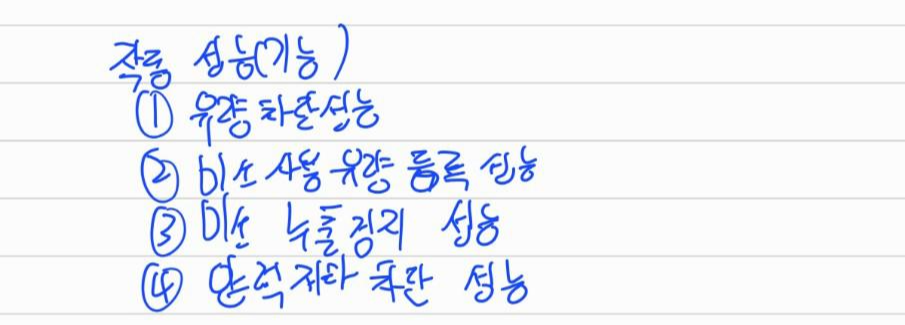 작동 성능(기능)
① 유량 차단 성능
② 미소 사용 유량 등록 성능
③ 미소 누출 검지 성능
④ 압력 저하 차단 성능